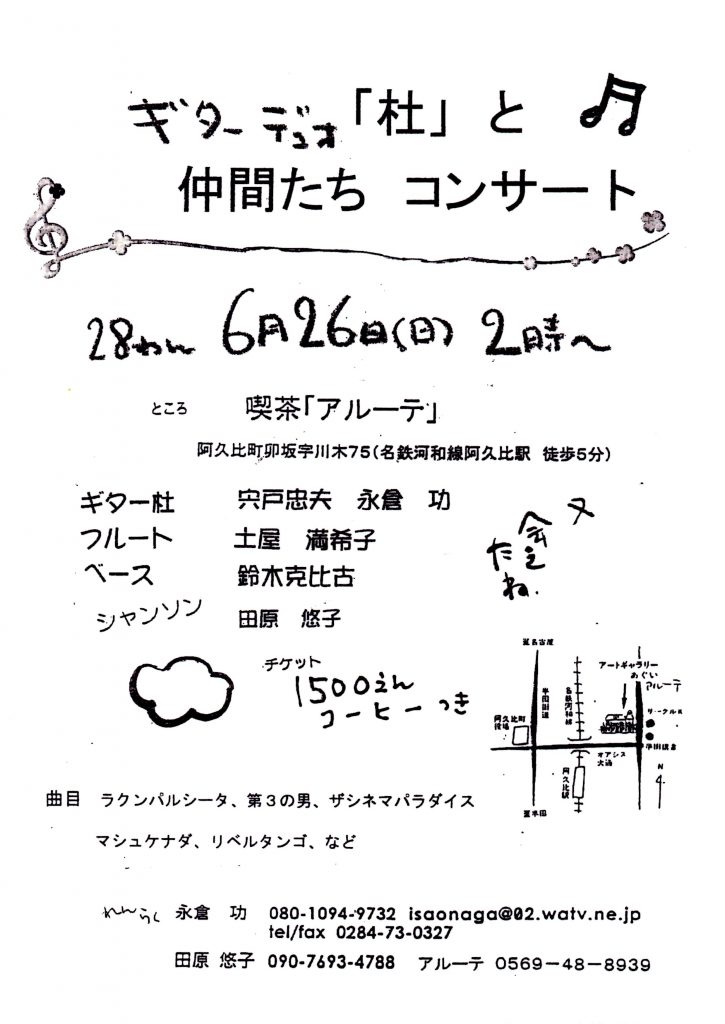 ギターデュオ「杜」と
仲間たち コンサート
28ねん 6月26日(日) 2時~
ところ 喫茶「アルーテ」
阿久比町卯坂字川木75(名鉄河和線阿久比駅 徒歩5分)
ギター杜 宍戸忠夫 永倉 功
フルート 土屋 満希子
ベース 鈴木克比古
シャンソン 田原 悠子
又
会え
たね.
チケット
1500えん
コーヒーつき
至名古屋
アートギャラリー
あぐい
アルーテ
半田街道
名鉄河和線
サークルK
阿久比町
役場
半田信金
オアシス
大通
阿久比駅
N
至半田
曲目 ラクンパルシータ、第3の男、ザシネマパラダイス
マシュケナダ、リベルタンゴ、など
れんらく 永倉 功 080-1094-9732 isaonaga@02.watv.ne.jp
tel/fax 0284-73-0327
田原 悠子 090-7693-4788 アルーテ 0569-48-8939